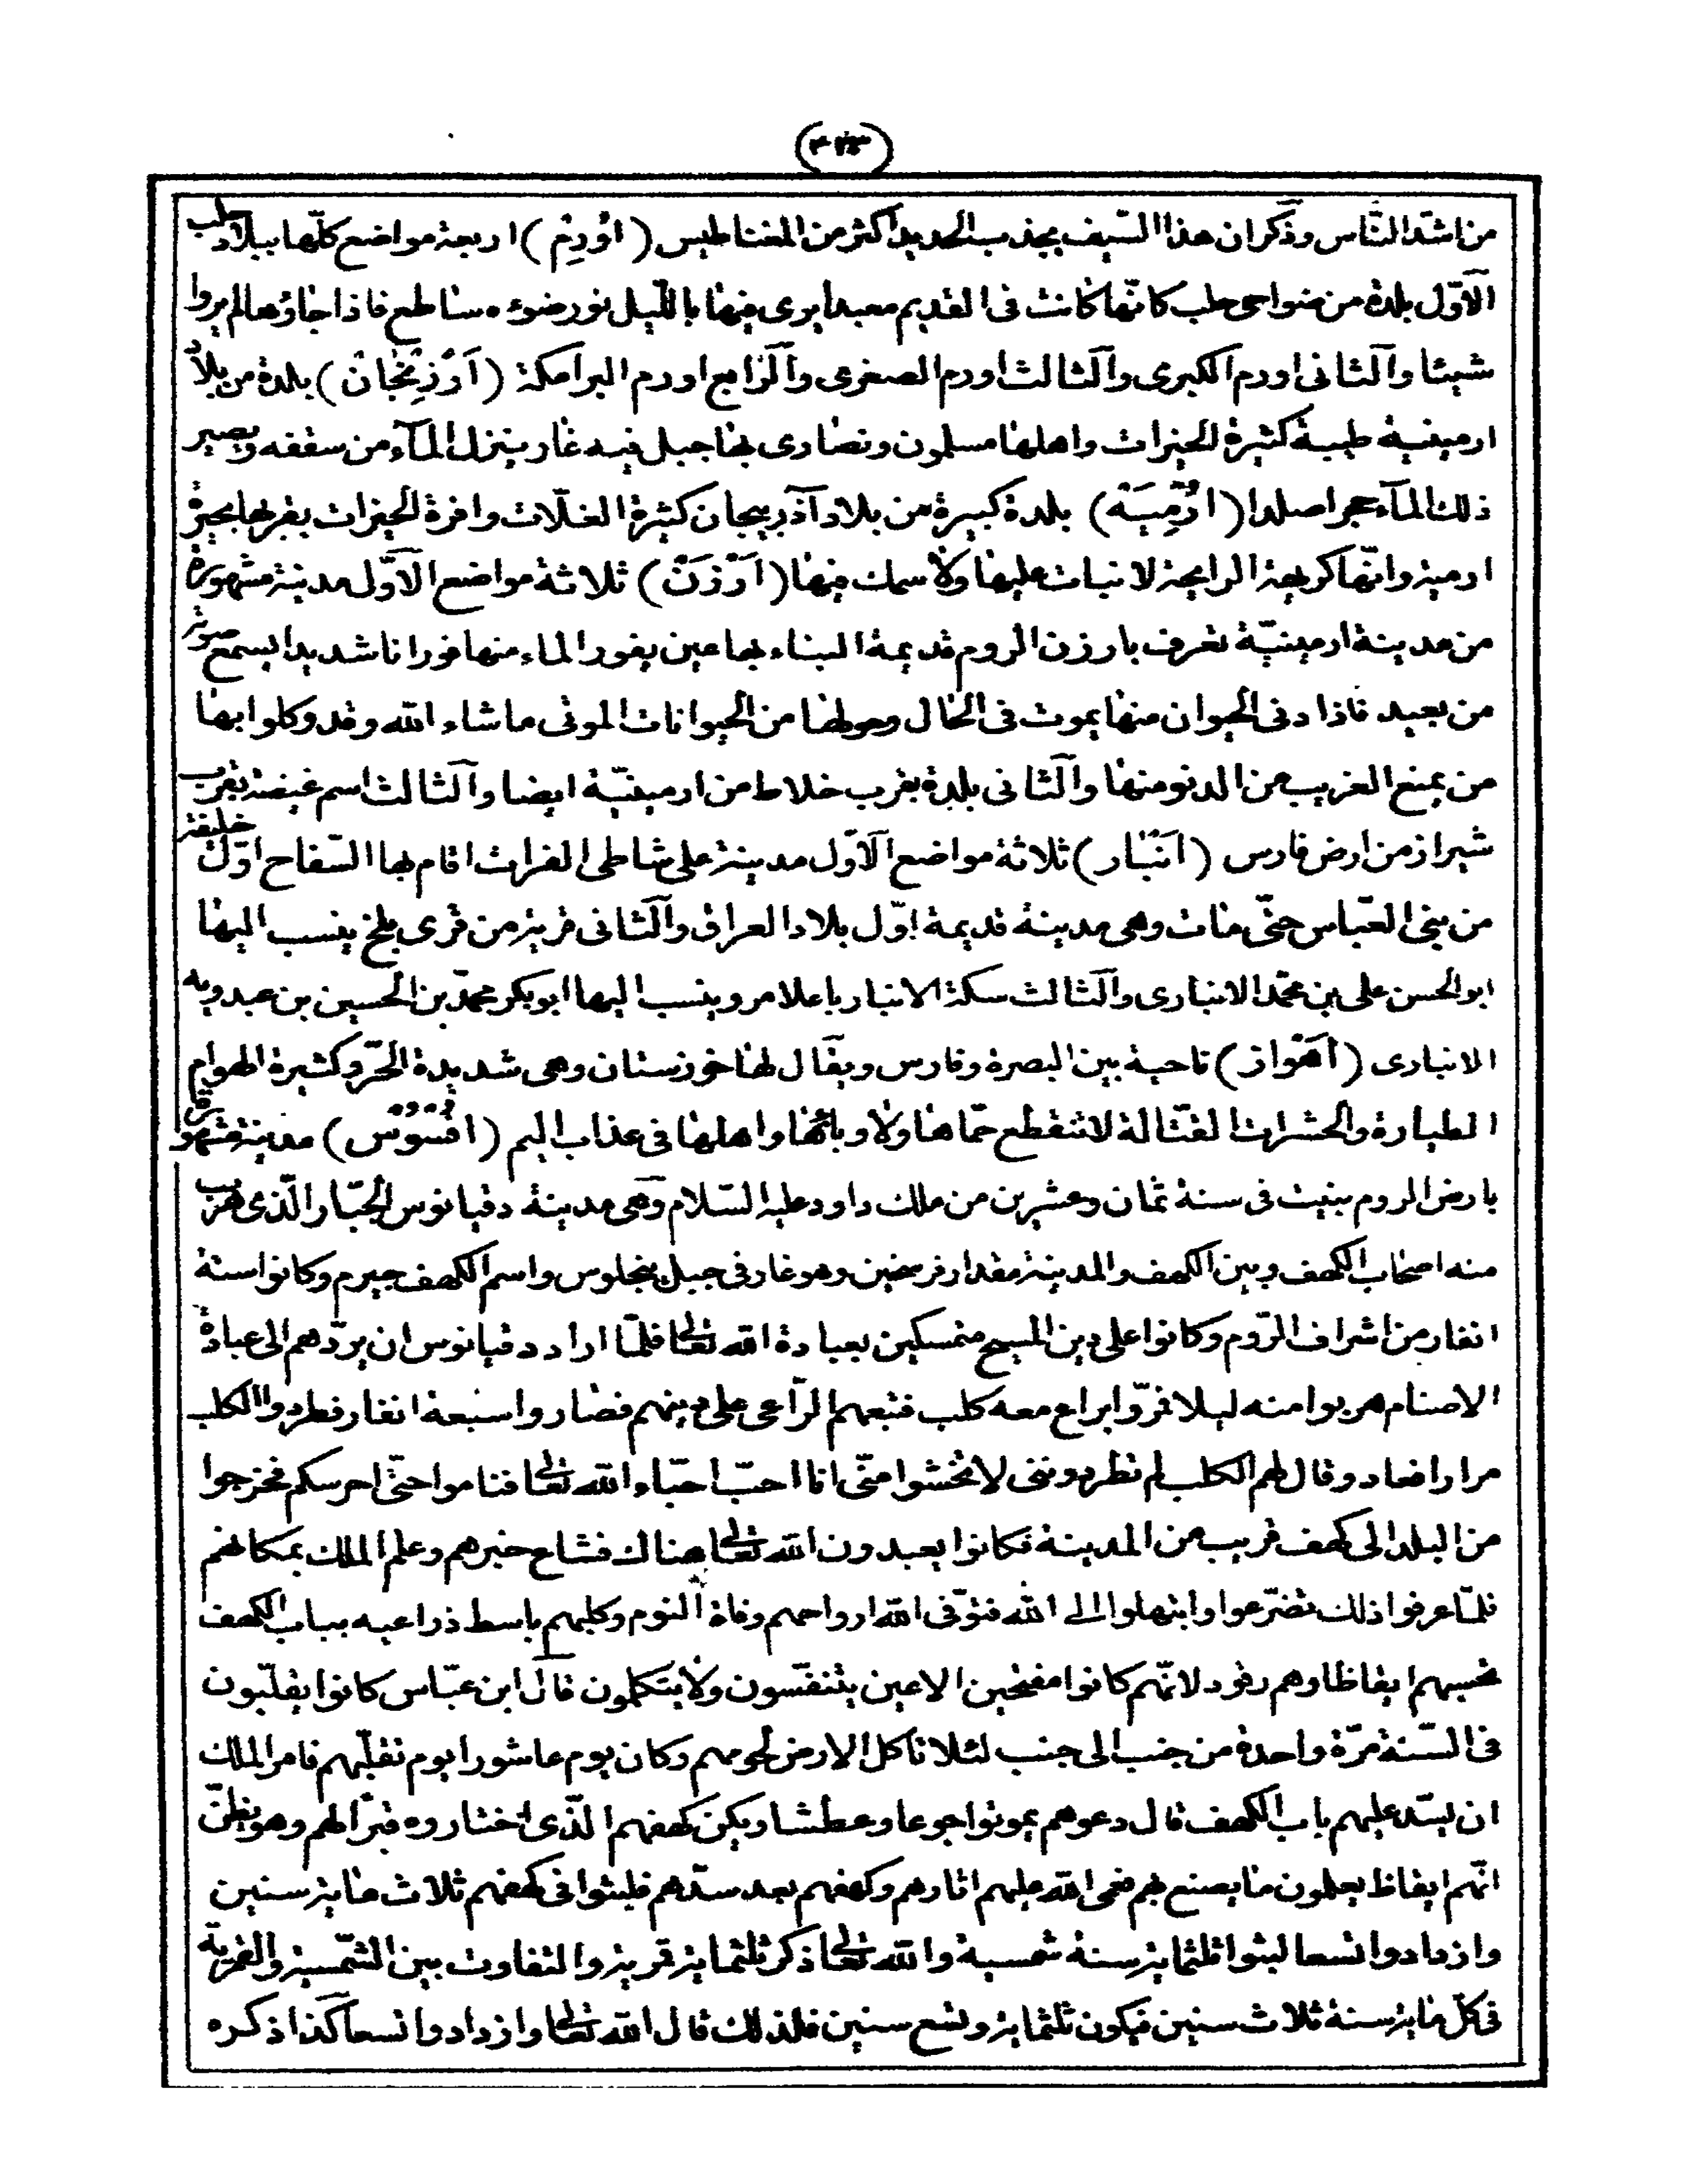 (٤٢٣)
من اشدّ النّاس وذكر ان هذا السّيف يجذب الحديد اكثر من المغناطيس (اوْرِمْ) اربعة مواضع كلّها ببلاد حلب
الآوّل بلدة من ضواحى حلب كانّها كانت فى القديم معبدا يرى فيها باللّيل نور ضوءه ساطع فاذا جاؤها لم يروا
شيئا والثانى اورم الكبرى والثالث اورم الصغرى والرّابع اورم البرامكة (اَرْزِنْجان) بلدة من بلاد
ارمينية طيبة كثيرة الخيرات واهلها مسلمون ونصارى بها جبل فيه غار ينزل المآء من سقفه ويصير
ذلك المآء حجرا صلدا (اُرْمِيَة) بلدة كبيرة من بلاد آذربيجان كثيرة الغلّات وافرة الخيرات بقربها بحيرة
ارمية وانّها كريهة الرايحة لا نبات عليها ولا سمك فيها (اَرْزَنْ) ثلاثة مواضع الآوّل مدينة مشهورة
من مدينة ارمينيّة تعرف بارزن الروم قديمة البناء بها عين يفور الماء منها فورانا شديدا يسمع صوته
من بعيد فاذا دنى الحيوان منها يموت فى الحال وحولها من الحيوانات الموتى ما شاء الله وقد وكلوا بها
من يمنع الغريب من الدنو منها والثانى بلدة بقرب خلاط من ارمينيّة ايضا والثالث اسم غيضة بقرب
شيراز من ارض فارس (اَنْبار) ثلاثة مواضع الآوّل مدينة على شاطى الفرات اقام بها السّفاح اوّل خليفة
من بنى العبّاس حتّى مات وهى مدينة قديمة اوّل بلاد العراق والثانى قرية من قرى بلخ ينسب اليها
ابو الحسن على بن محمّد الانبارى والثالث سكة الانبار باعلا مرو ينسب اليها ابو بكر محمّد بن الحسين بن عبدويه
الانبارى (اَهْواز) ناحية بين البصرة وفارس ويقال لها خوزستان وهى شديدة الحرّ وكثيرة الهوام
الطيارة والحشرات القتالة لا تنقطع حمّاها ولا وبائها واهلها فى عذاب اليم (افْسُوْس) مدينة مشهورة
بارض الروم بنيت فى سنة ثمان وعشرين من ملك داود عليه السّلام وهى مدينة دقيانوس الجبّار الّذى هرب
منه اصحاب الكهف وبين الكهف والمدينة مقدار فرسخين وهو غار فى جبل ينجلوس واسم الكهف جيرم وكانوا ستة
انفار من اشراف الرّوم وكانوا على دين المسيح متمسكين بعبادة الله تعالى فلمّا اراد دقيانوس ان يردّهم الى عبادة
الاصنام هربوا منه ليلا فمرّوا براع معه كلب فتبعهم الرّاعى على دينهم فصاروا سبعة انفار فطردوا الكلب
مرارا فعاد وقال لهم الكلب لم تطردوننى لا تخشوا منّى انا احبّ احبّاء الله تعالى فناموا حتّى احرسكم فخرجوا
من البلد الى كهف قريب من المدينة فكانوا يعبدون الله تعالى هناك فشاع خبرهم وعلم الملك بمكانهم
فلمّا عرفوا ذلك تضرّعوا وابتهلوا الى الله فتوّفى الله ارواحهم وفاة النوم وكلبهم باسط ذراعيه بباب الكهف
تحسبهم ايقاظا وهم رقود لانّهم كانوا مفتحين الاعين يتنفّسون ولا يتكلمون قال ابن عبّاس كانوا يقلّبون
فى السّنة مرّة واحدة من جنب الى جنب لئلا تاكل الارض لحومهم وكان يوم عاشورا يوم تقلّبهم فامر الملك
ان يسدّ عليهم باب الكهف قال دعوهم يموتوا جوعا وعطشا ويكن كهفهم الّذى اختاروه قبرا لهم وهو يظنّ
انّهم ايقاظ يعلمون ما يصنع بهم فعمى الله عليهم اثارهم وكهفهم بعد سدّهم فلبثوا فى كهفهم ثلاث ماية سنين
وازدادوا تسعا لبثوا ثلثماية سنة شمسية والله تعالى ذكر ثلثماية قمرية والتفاوت بين الشّمسية والقمريّة
فى كلّ ماية سنة ثلاث سنين فيكون ثلثماية وتسع سنين فلذلك قال الله تعالى وازدادوا تسعا كذا ذكره